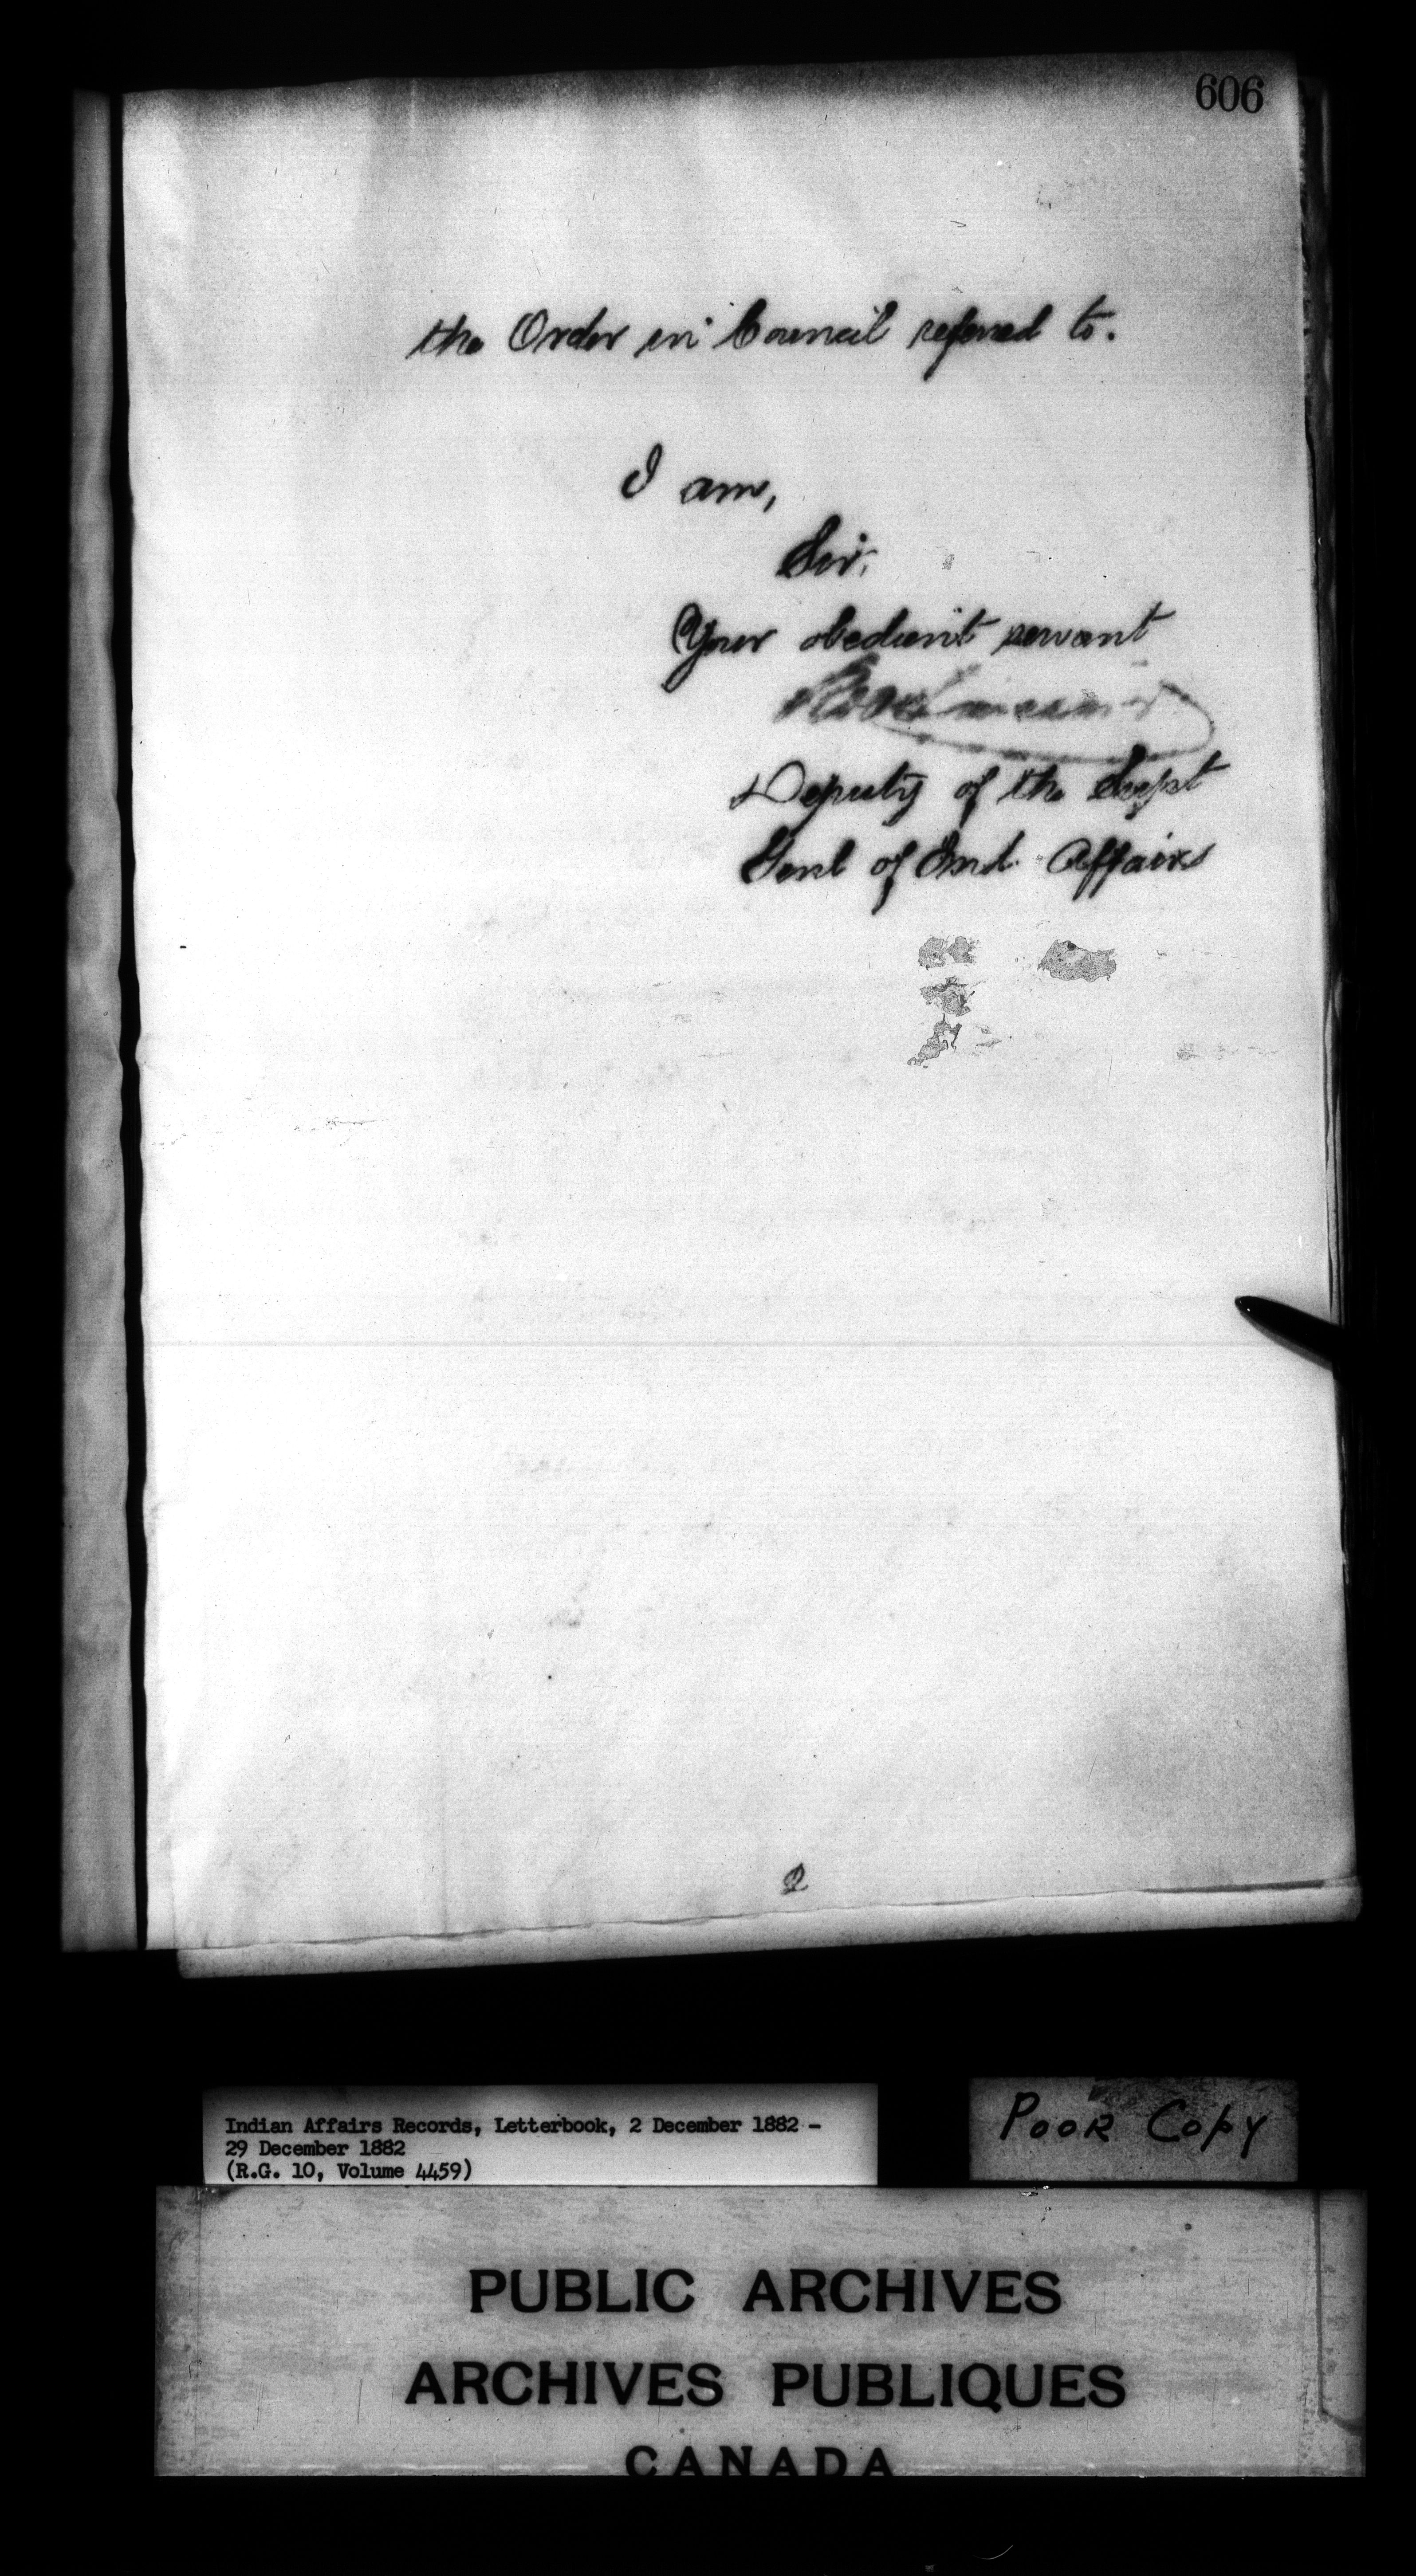 606
the Order in Council referred to.
I am,
Sir,
Your obedient servant
Deputy of the Supt
Genl of Ind. Affairs
2
Indian Affairs Records, Letterbook, 2 December 1882 -
29 December 1882
(R.G. 10, Volume 4459)
Poor Copy
PUBLIC ARCHIVES
ARCHIVES PUBLIQUES
CANADA